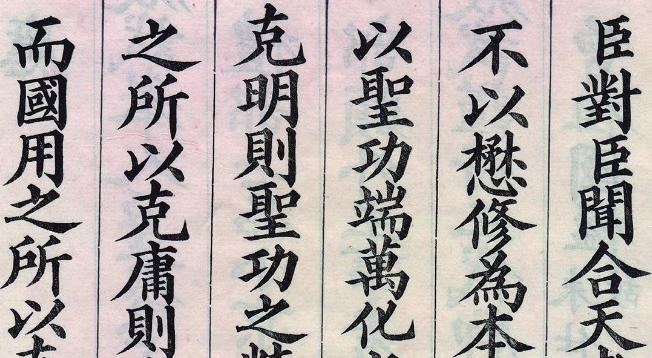 臣對臣聞合天
不以懋修為本
以聖功端萬化
克明則聖功之
之所以克庸則
而國用之所以